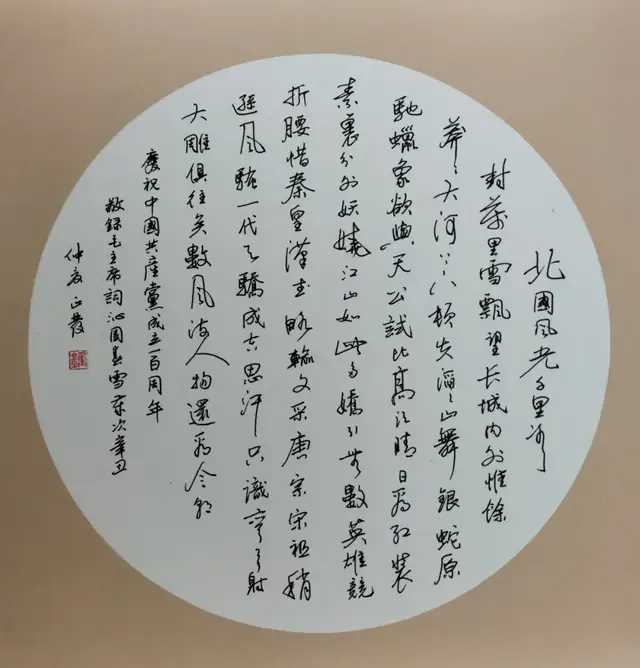 北國风光千里冰
封萬里雪飄望長城内外惟餘
莽〻大河上下頓失滔〻山舞銀蛇原
馳蠟象欲與天公試比高須晴日看红装
素裹分外妖嬈江山如此多嬌引無數英雄競
折腰惜秦皇漢武略輸文采唐宗宋祖稍
遜风騷一代天驕成吉思汗只識彎弓射
大雕俱往矣數风流人物還看今朝
慶祝中國共産黨成立一百周年
敬録毛主席詞沁園春雪歲次辛丑
仲夏正發